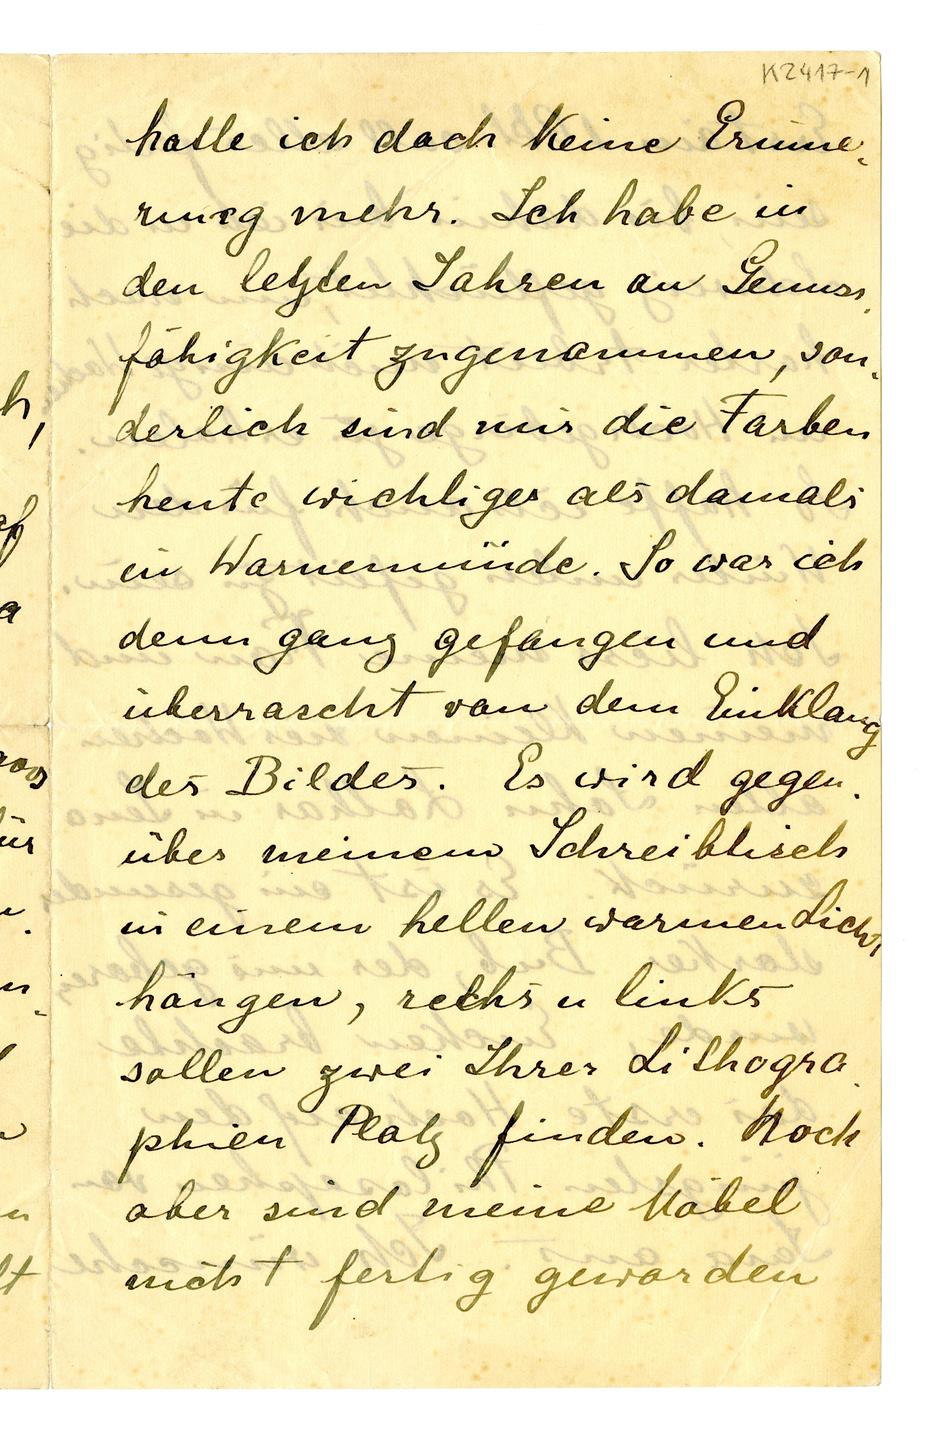 K2417-1
hatte ich doch keine Erinne-
rung mehr. Ich habe in
den letzten Jahren an Genuss-
fähigkeit zugenommen, son-
derlich sind mir die Farben
heute wichtiger als damals
in Warnemünde. So war ich
denn ganz gefangen und
überrascht von dem Einklang
des Bildes. Es wird gegen-
über meinem Schreibtisch
in einem hellen warmen Licht
hängen, rechts u links
sollen zwei Ihrer Lithogra-
phien Platz finden. Noch
aber sind meine Möbel
nicht fertig geworden